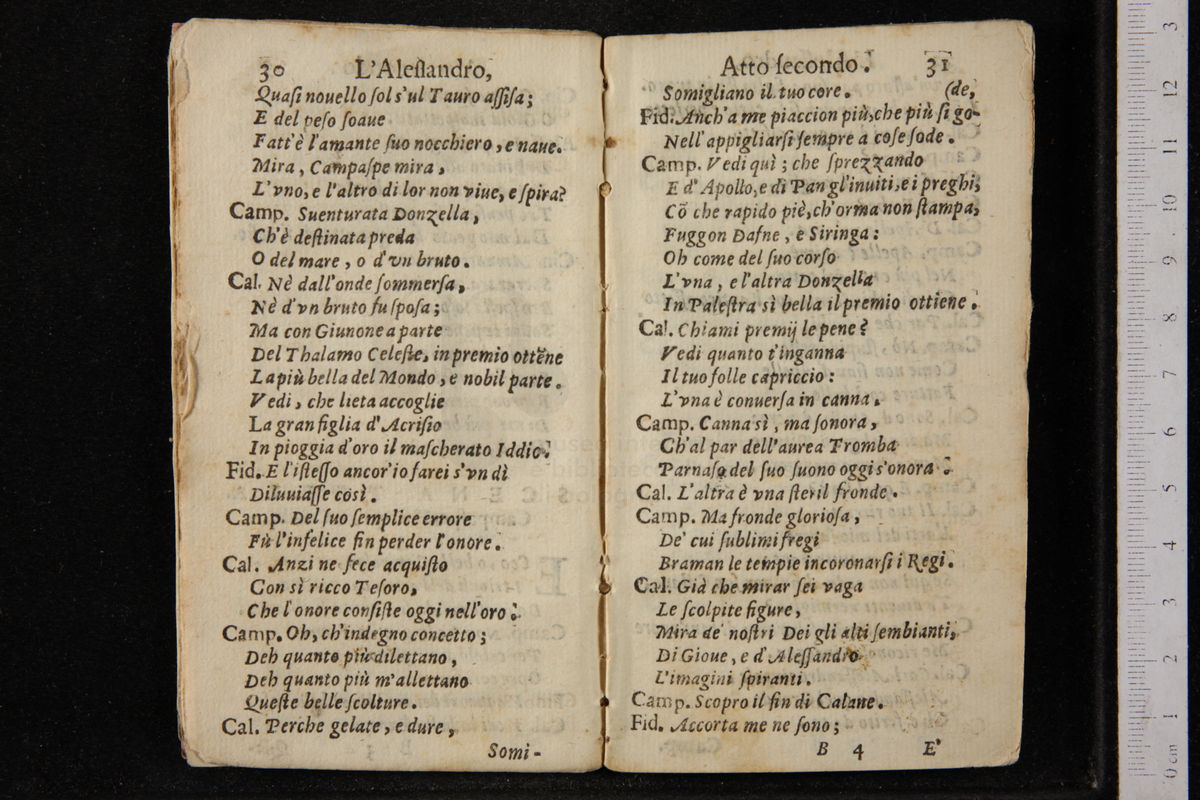 30 L'Alessandro,
Quasi nouello sol s'ul Tauro assisa;
E del peso soaue
Fatt'è l'amante suo nocchiero, e naue.
Mira, Campaspe mira,
L'vno, e l'altro di lor non viue, e spira?
Camp. Suenturata Donzella,
Ch'è destinata preda
O del mare, o d'vn bruto.
Cal. Nè dall'onde sommersa,
Nè d'vn bruto fu sposa;
Ma con Giunone a parte
Del Thalamo Celeste, in premio ottẽne
La più bella del Mondo, e nobil parte.
Vedi, che lieta accoglie
La gran figlia d'Acrisio
In pioggia d'oro il mascherato Iddio!
Fid. E l'istesso ancor'io farei s'vn dì
Diluuiasse così.
Camp. Del suo semplice errore
Fù l'infelice fin perder l'onore.
Cal. Anzi ne fece acquisto
Con sì ricco Tesoro,
Che l'onore consiste oggi nell'oro.
Camp. Oh, ch'indegno concetto;
Deh quanto più dilettano,
Deh quanto più m'allettano
Queste belle scolture.
Cal. Perche gelate, e dure,
Somi-
Atto secondo. 31
Somigliano il tuo core. (de,
Fid. Anch'a me piaccion più, che più si go-
Nell'appigliarsi sempre a cose sode.
Camp. Vedi quì; che sprezzando
E d'Apollo, e di Pan gl'inuiti, e i preghi,
Cõ che rapido piè, ch'orma non stampa,
Fuggon Dafne, e Siringa:
Oh come del suo corso
L'vna, e l'altra Donzella
In Palestra sì bella il premio ottiene.
Cal. Chiami premij le pene?
Vedi quanto t'inganna
Il tuo folle capriccio:
L'vna è conuersa in canna.
Camp. Canna sì, ma sonora,
Ch'al par dell'aurea Tromba
Parnaso del suo suono oggi s'onora.
Cal. L'altra è vna steril fronde.
Camp. Ma fronde gloriosa,
De' cui sublimi fregi
Braman le tempie incoronarsi i Regi.
Cal. Già che mirar sei vaga
Le scolpite figure,
Mira de' nostri Dei gli alti sembianti,
Di Gioue, e d'Alessandro
L'imagini spiranti.
Camp. Scopro il fin di Calane.
Fid. Accorta me ne sono;
B 4 E'
0 cm 1 2 3 4 5 6 7 8 9 10 11 12 3